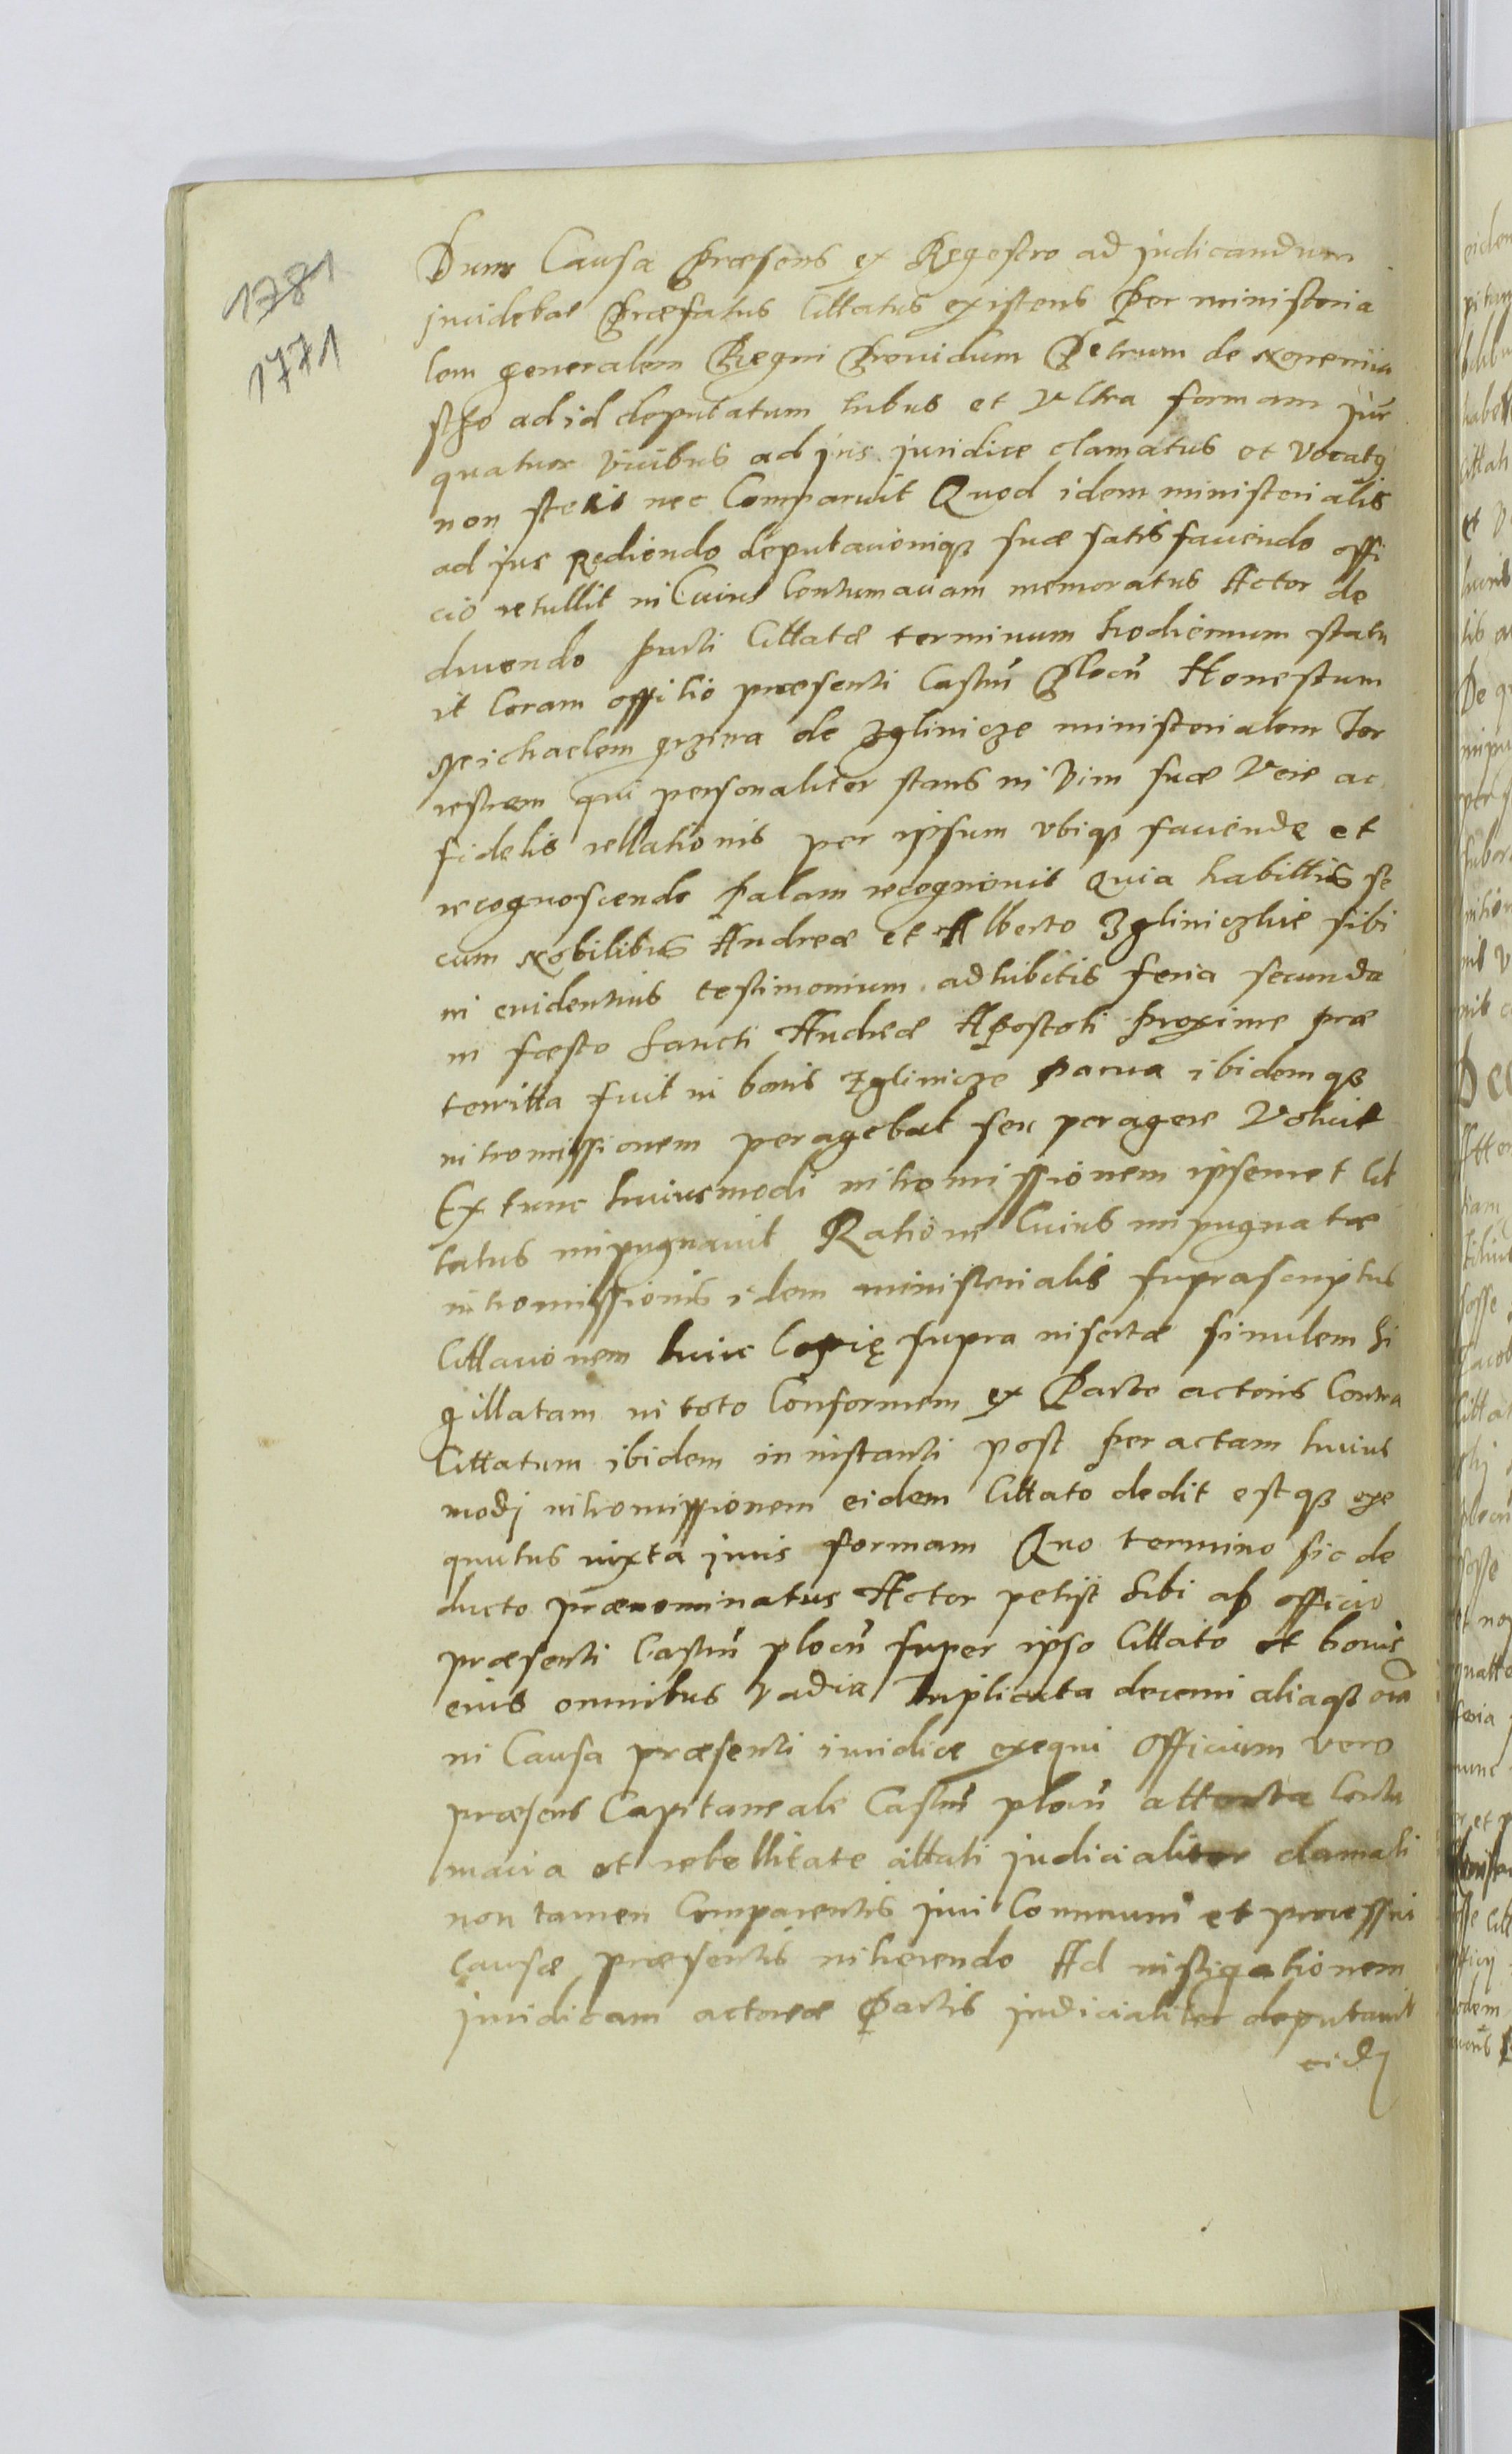 1781
1771
Dum Causa Præsens ex Regestro ad judicandum
jncidebat Præfatus Cittatus existens Per ministeria
lem generalem Regni Providum Petrum de
ad id deputatum tribus et Vltra formam jur
quatuor vicibus ad jus juridice clamatus et Vocatq
non stetit nec Comparuit Quod idem ministerialis
ad jus Rediendo deputacioniqȝ suæ satisfaciendo offi
cio retullit in Cuius Contumaciam memoratus Actor de
ducendo parti Cittatæ terminum hodiernum statu
it Coram officio præsenti Castrñ Plocñ Honestum
Michaelem grziwa de Zglinicze ministerialem Ter
restrem qui personaliter stans in Vim suæ Veræ ac
fidelis rellationis per ipsum vbiqȝ faciendę et
recognoscendo Palam recognovit Quia habittis se
cum Nobilibus Andrea et Alberto Zgliniczkie sibi
in evidentius testimonium adhibitis feria secunda
in fæsto Sancti Andreæ Apostoli Proxime præ
territta fuit in bonis Zglinicze Parva ibidemqȝ
intromissionem peragebat seu peragere Voluit
Ex tunc huiusmodi intromissionem ipsemet Cit
tatus impugnavit Ratione Cuius impugnatæ
intromissionis idem ministerialis suprascriptus
Cittacionem huic Copię supra insertæ similem Si
gillatam in toto Conformem ex Parte actoris Contra
Cittatum ibidem in instanti post peractam huius
modj intromissionem eidem Cittato dedit estqȝ exe
quutus iuxta juris formam Quo termino sic de
ducto prænominatus Actor petijt Sibi ab officio
præsenti Castrñ plocñ super ipso Cittato et bonis
eius omnibus Vadia Triplicata decerni aliaqȝ oĩa
in Causa præsenti iuridice exequi Officium vero
præsens Capitaneale Castrñ plocñ attenta Contu
macia et rebellitate cittati judicialiter clamati
non tamen Comparentis juri Communi et processui
causæ præsentis inherendo Ad instigationem
juridicam actoreæ Partis judicialiter deputavit
eidj